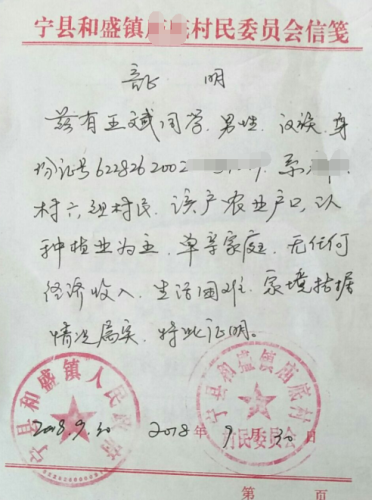 宁县和盛镇 村民委员会信笺
证 明
兹有王斌同学.男性.汉族.身
份证号622826 2002 系
村六组村民.该户农业户口.以
种植业为主.单亲家庭.无任何
经济收入.生活困难.家境拮据
情况属实.特此证明。
宁县和盛镇人民政府
2018.9.30
宁县和盛镇庙底村
村民委员会
2018年9月30日
第 页